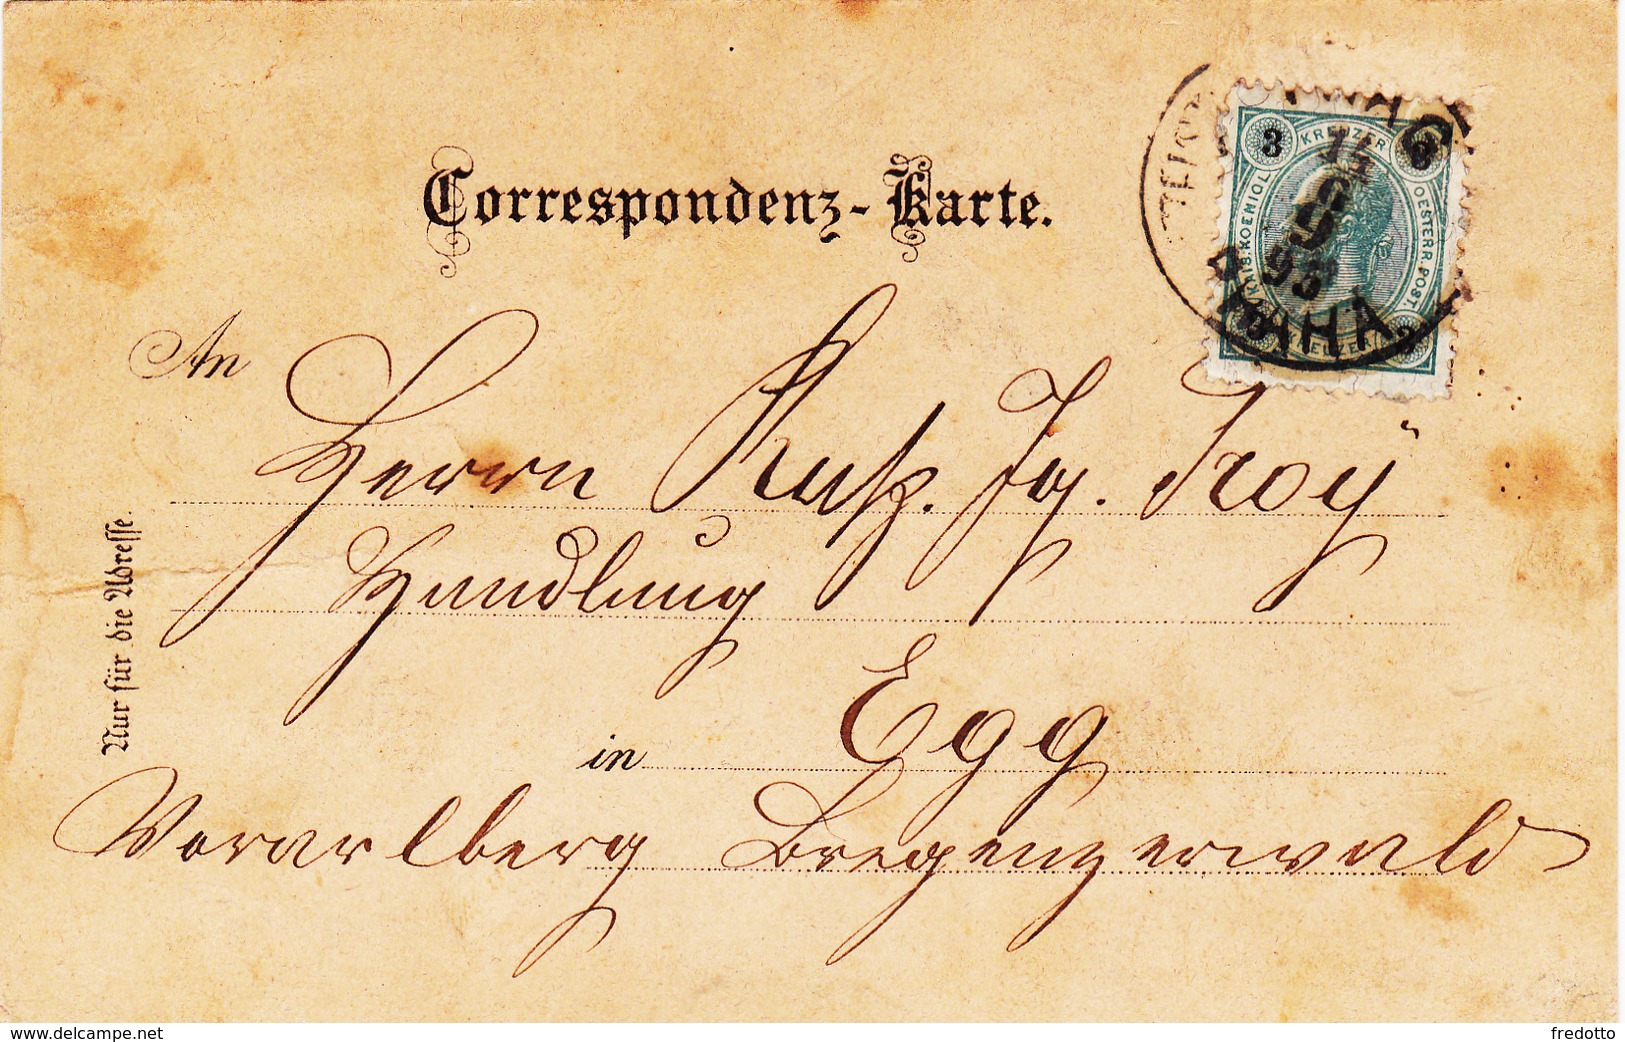 Correspondenz-Karte.
3 KREUZER 3
KAIS. KOENIGL. OESTERR. POST.
KREUZER 3
PRAG
14
9
98
PRAHA
An
Herrn
Jos. Troÿ
Handlung
in Egg
Vorarlberg Bregenzerwald
Nur für die Adresse.
www.delcampe.net
fredotto